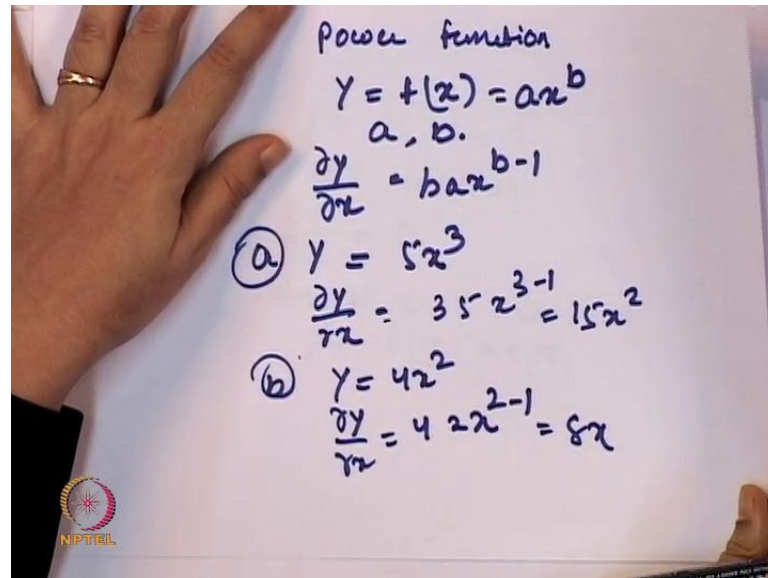 Power function
Y = f(x) = ax^b
a, b.
∂y/∂x = bax^{b-1}
(a) Y = 5x^3
∂y/∂x = 3 5 x^{3-1} = 15x^2
(b) Y = 4x^2
∂y/∂x = 4 2x^{2-1} = 8x
NPTEL